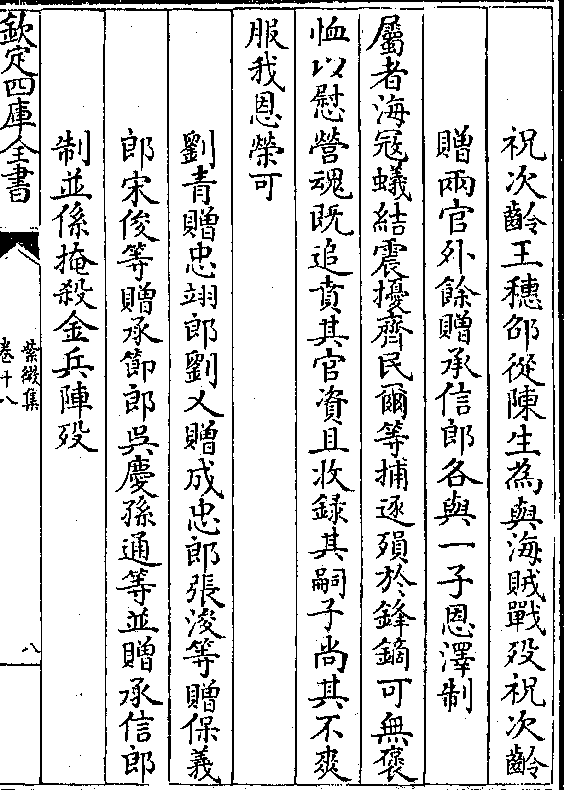 祝次齡王穗邵從陳生為與海賊戰歿祝次齡
贈兩官外餘贈承信郎各與一子恩澤制
屬者海冦蟻結震擾齊民爾等捕逐殞於鋒鏑可無褒
恤以慰營魂既追賁其官資且收録其嗣子尚其不爽
服我恩榮可
劉青贈忠翊郎劉乂贈成忠郎張浚等贈保義
郎宋俊等贈承節郎吳慶孫通等並贈承信郎
制並係掩殺金兵陣歿
欽定四庫全書
紫微集
卷十八
八